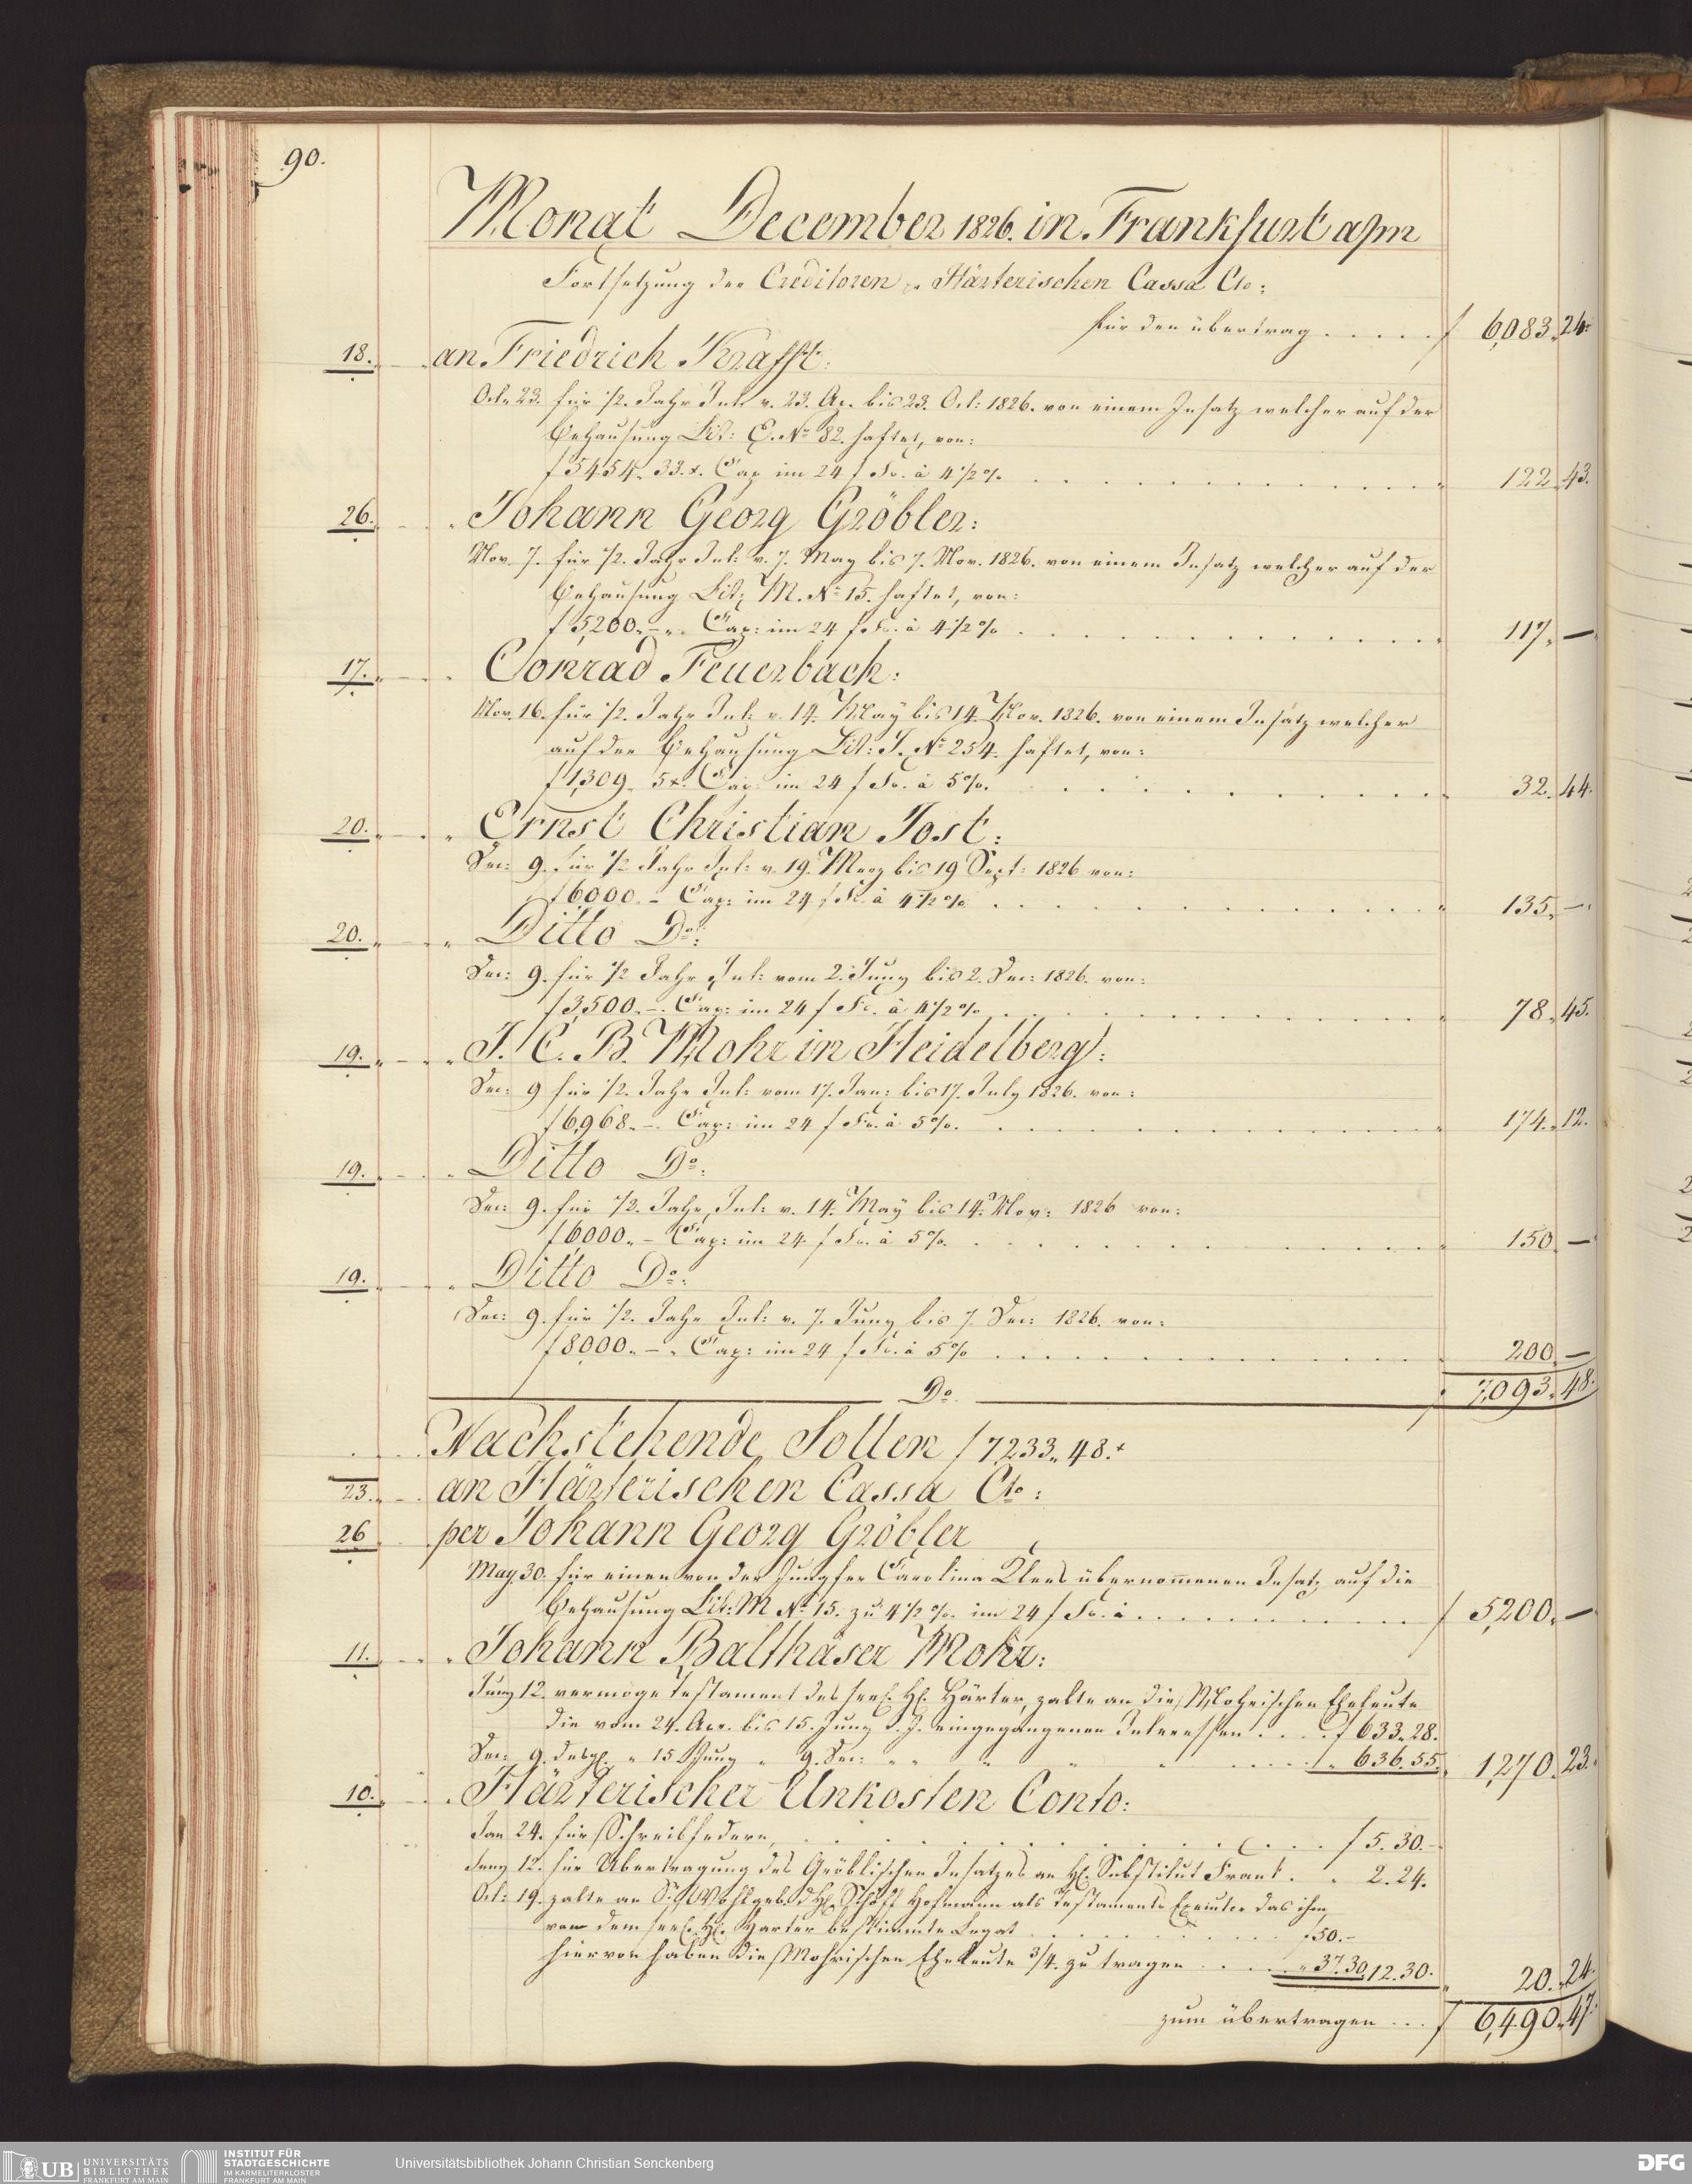 90.
Monat December 1826. in Frankfurt a/m
Fortsetzung der Creditoren Härterischen Cassa Cto:
für den übertrag . . . . . f 6,083. 24.
18. an Friedrich Krafft:
Oct. 23. für 1/2. Jahr Int. v. 23. Ap. bis 23. Oct: 1826. von einem Insatz welcher auf der
Behausung Lit: E. No 82. haftet, von:
f 5454. 33.x. Cap im 24 f Fs. à 4 1/2 % 122. 43.
26. „ Johann Georg Gröbler:
Nov. 7. für 1/2. Jahr Int: v. 7. May bis 7. Nov. 1826. von einem Insatz welcher auf der
Behausung Lit: M. No 15. haftet, von:
f 5,200. – „ Cap: im 24 f Fs. à 4 1/2 % 117. —
17. „ Conrad Feuerbach:
Nov. 16. für 1/2. Jahr Int: v. 14. May bis 14. Nov. 1826. von einem Insatz welcher
auf der Behausung Lit: J. No 254. haftet, von:
f 1,309. 5x. Cap im 24 f Fs. à 5 %. 32. 44.
20. „ Ernst Christian Jost:
Dec: 9. für 1/2 Jahr Int: v. 19. Merz bis 19 Sept: 1826 von:
f 6000. – Cap: im 24 f Fs. à 4 1/2 % 135. —
20. „ Ditto Do:
Dec: 9. für 1/2 Jahr Int: vom 2. Juny bis 2. Dec: 1826. von:
f 3,500. –. Cap: im 24 f Fs. à 4 1/2 % 78. 45.
19. „ J. C. B. Mohr in Heidelberg:
Dec: 9 für 1/2. Jahr Int: vom 17. Jan: bis 17. July 1826. von:
f 6,968. –. Cap: im 24 f Fs. à 5 %. 174. 12.
19. „ Ditto Do:
Dec: 9. für 1/2. Jahr Int: v. 14. May bis 14. Nov: 1826 von:
f 6000. – Cap: im 24. f Fs. à 5 %. 150. —
19. „ Ditto Do:
Dec: 9. für 1/2. Jahr Int: v. 7. Juny bis 7. Dec: 1826. von:
f 8,000. – „ Cap: im 24 f Fs. à 5 % 200. —
Do. f 7,093. 48.
Nachstehende Sollen f 7,233. 48.x
23. an Härterischen Cassa Cto:
26 per Johann Georg Gröbler
May 30. für einen von der Jungfer Carolina Klees übernommenen Insatz auf die
Behausung Lit: M No 15. zu 4 1/2 %. im 24 f Fs. à . . . f 5,200. —
11. „ Johann Balthaser Mohr:
Juny 12. vermöge Testament des seel. H. Härter, zalte an die Mohrischen Eheleute
die vom 24. Apr. bis 15. Juny d. J. eingegangenen Interessen . . . f 633. 28.
Dec: 9. desgl. „ 15 Juny „ 9. Dec: „ „ 636. 55. „ 1,270. 23.
10. „ Härterischer Unkosten Conto:
Jan 24. für Schreibfedern, f 5. 30.
Juny 12. für Übertragung des Gröblischen Insatzes an H. Substitut Frank . „ 2. 24.
Oct: 19. zalte an Sr. Wohlgeb. d H. Schöff Hofmann als Testaments Executor das ihm
von dem seel. H. Harter bestimmte Legat . . . f 50. –
hiervon haben die Mohrischen Eheleute 3/4. zu tragen . . . „ 37. 30. 12. 30. 20. 24.
zum übertragen . . . f 6,490. 47.
UB UNIVERSITÄTS
BIBLIOTHEK
FRANKFURT AM MAIN
INSTITUT FÜR
STADTGESCHICHTE
IM KARMELITERKLOSTER
FRANKFURT AM MAIN
Universitätsbibliothek Johann Christian Senckenberg
DFG